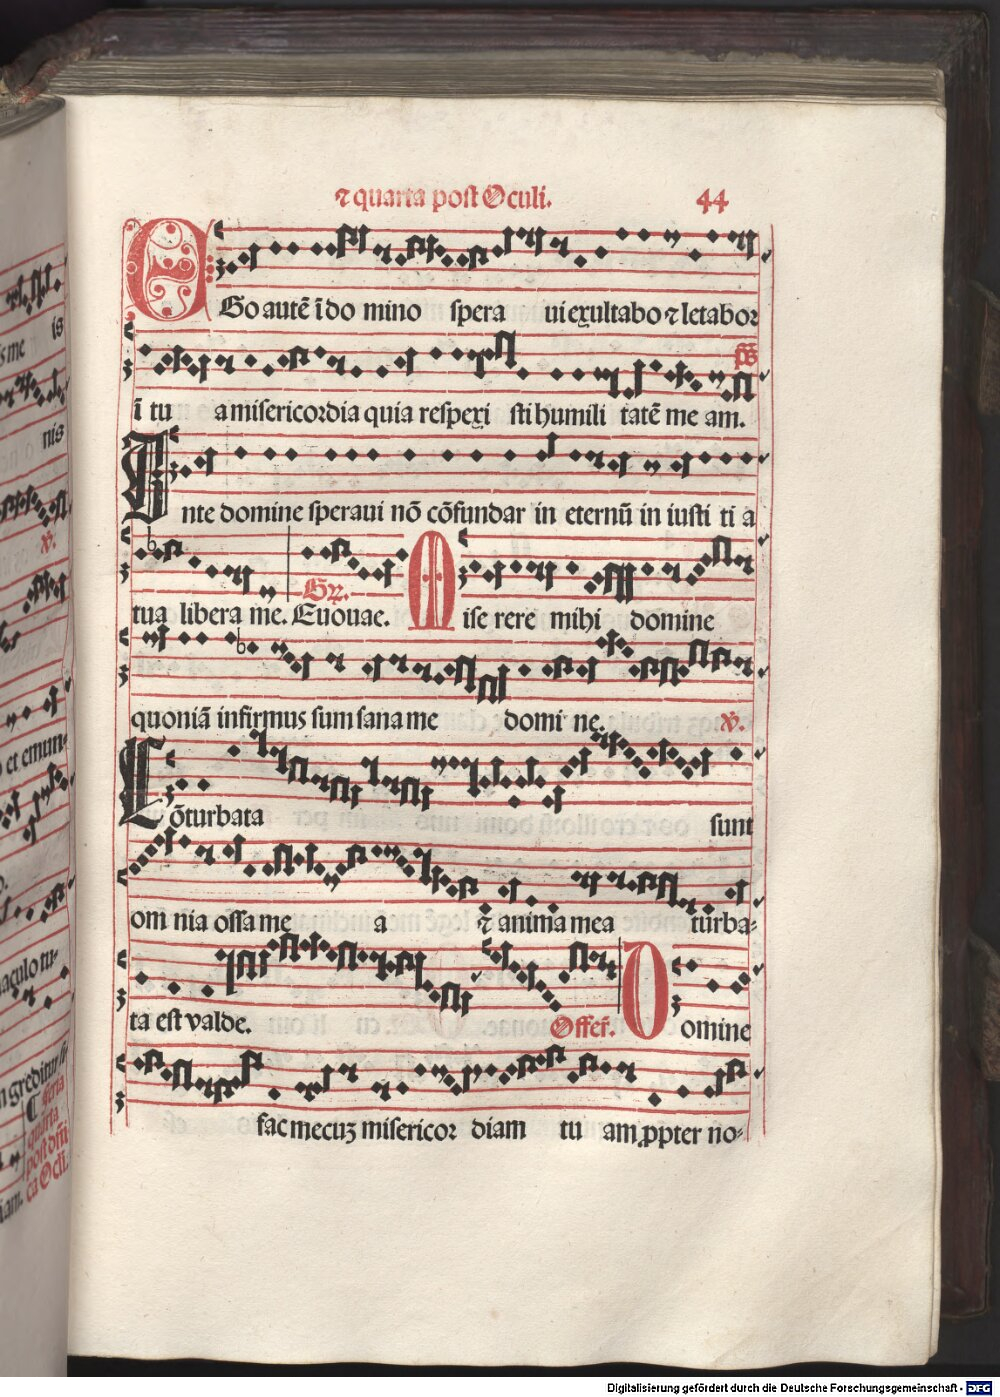 ⁊ quarta post Oculi. 44
EGo autē ī do mino spera ui exultabo ⁊ letabor
ī tu a misericordia quia respexi sti humili tatē me am. ps̄
Inte domine speraui nō cōfundar in eternū in iusti ti a
tua libera me. Euouae. Gr. Mise rere mihi domine
quoniā infirmus sum sana me domi ne. v.
Cōturbata sunt
om nia ossa me a ⁊ anima mea turba-
ta est valde. Offer̄. Domine
fac mecuꝫ misericor diam tu am ꝓpter no-
is
s me
nis
v.
o et emun-
aculo tu-
ngreditur
feria
quarta
post dn̄i
ca Ocli.
iam.
Digitalisierung gefördert durch die Deutsche Forschungsgemeinschaft - DFG